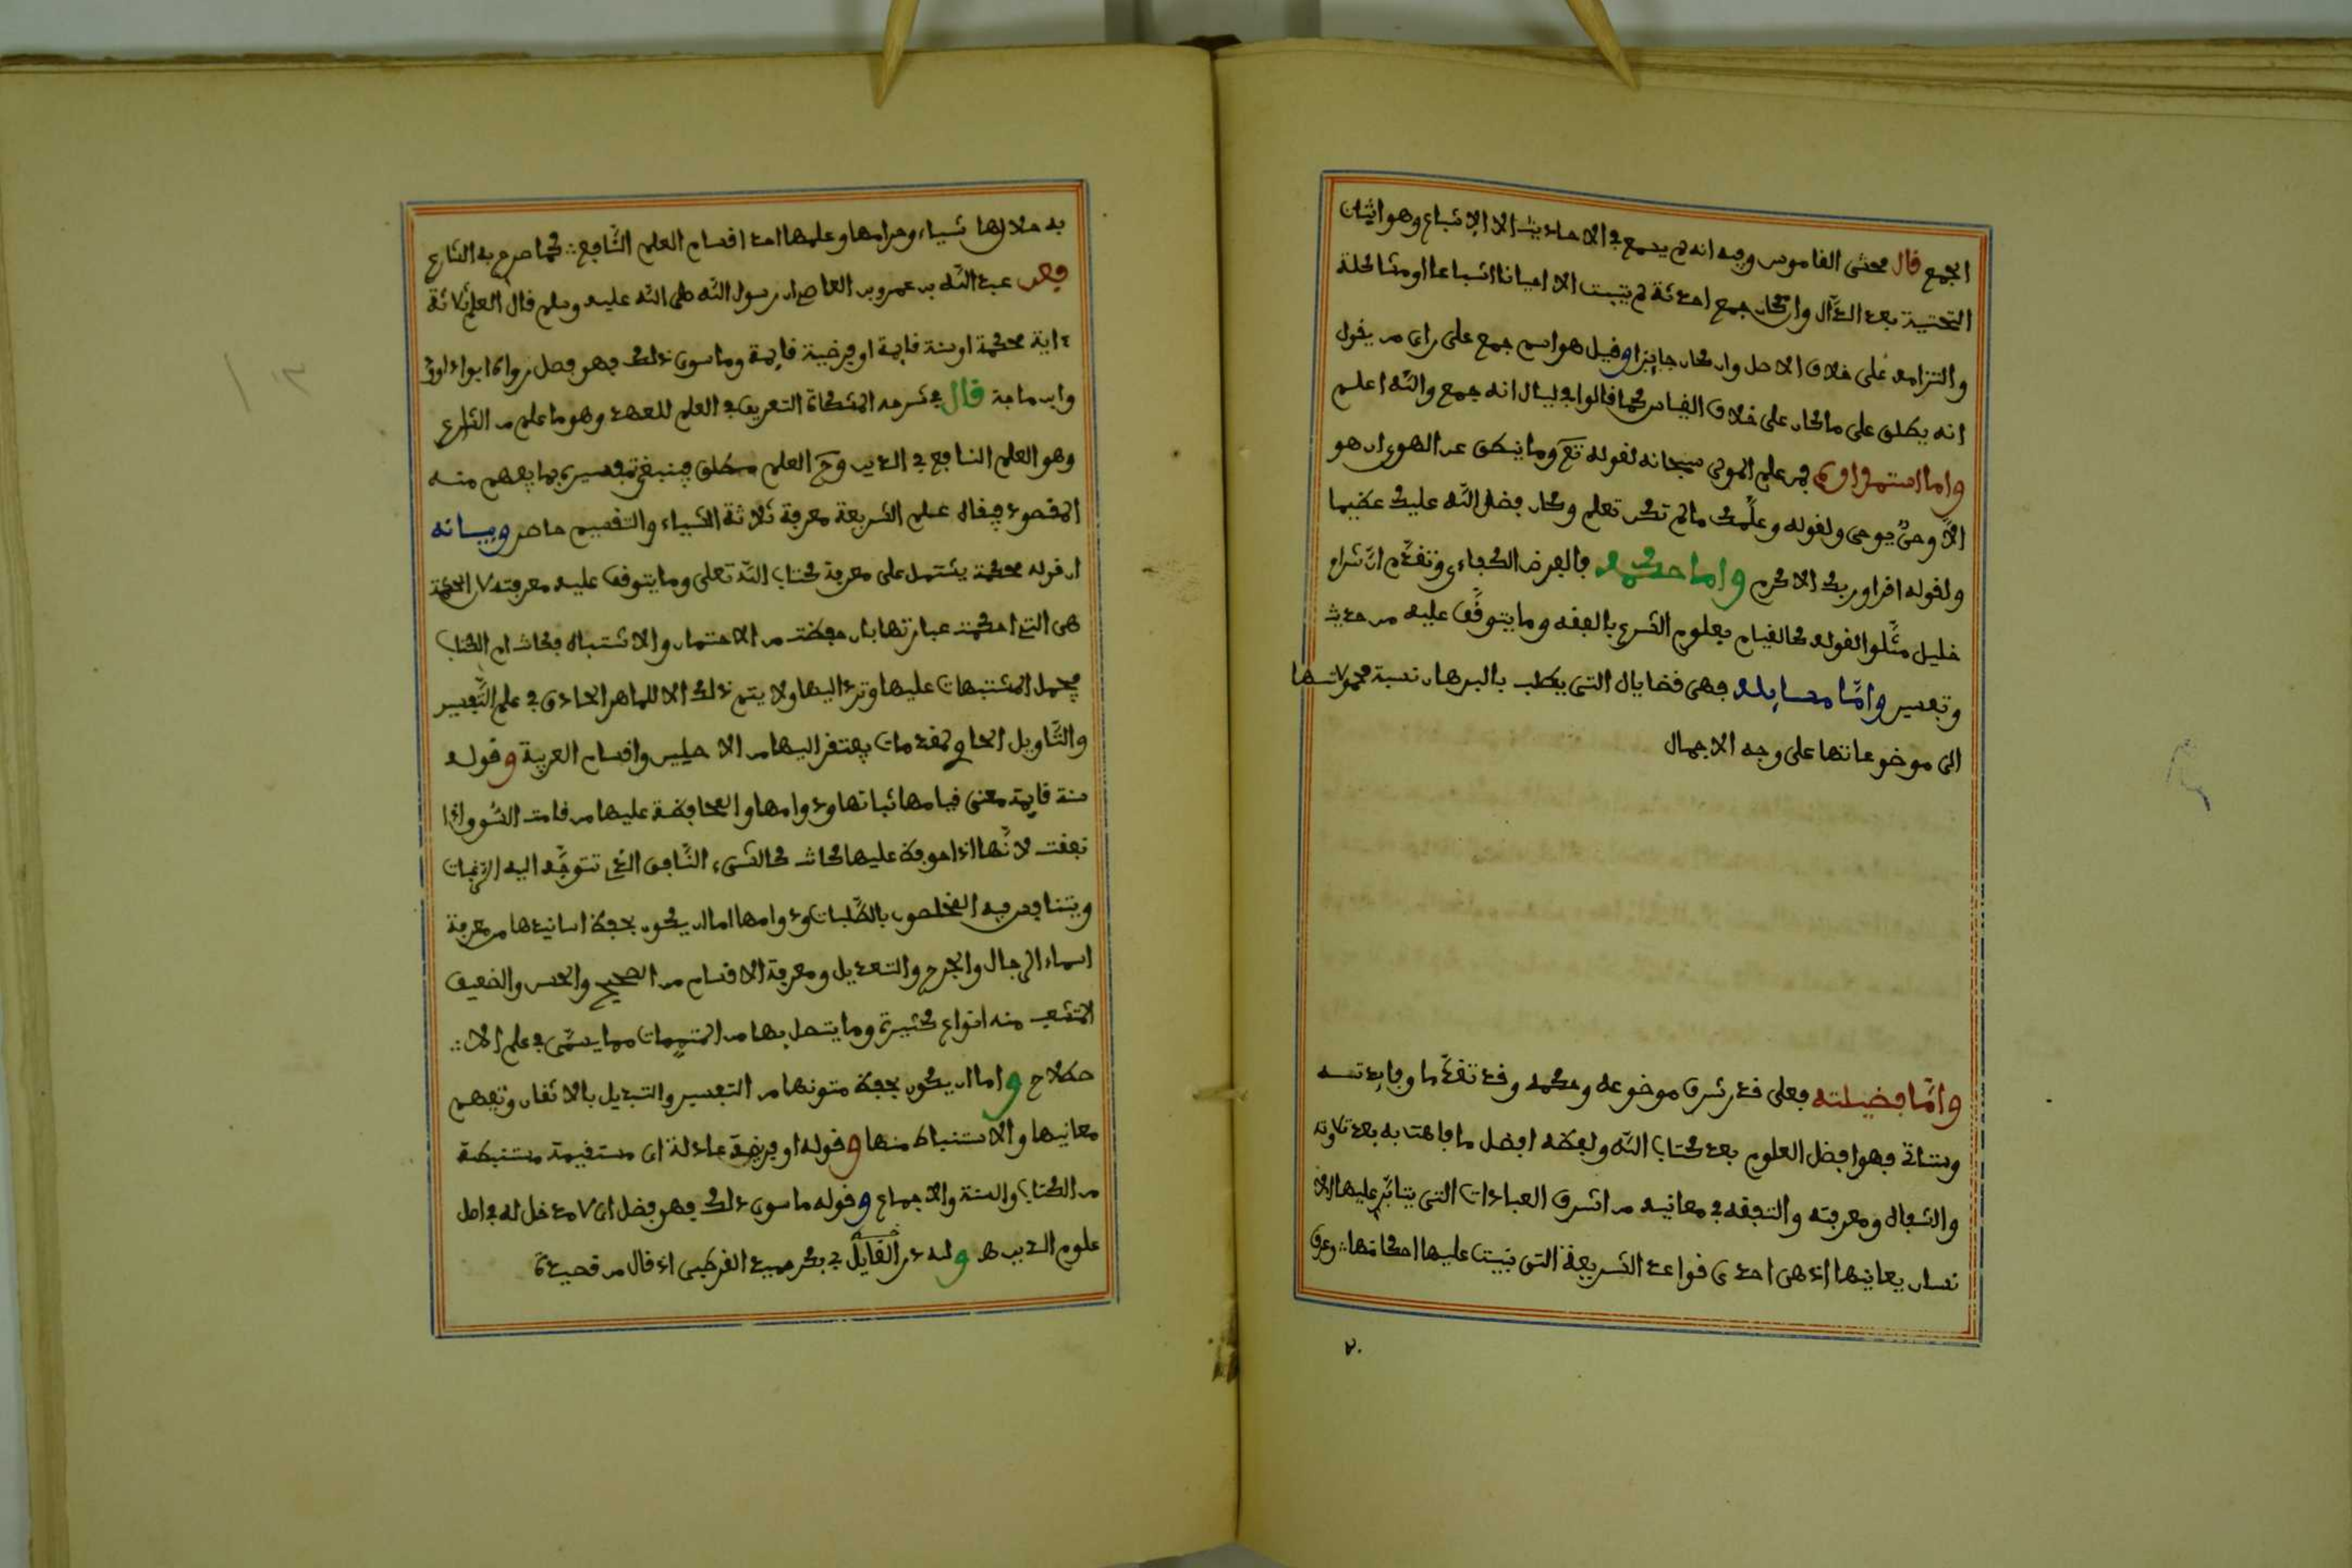 الجمع قال محشى القاموس وجه انه لم يسمع في الاحاديث الا الإشباع وهو اثبات
التحتية بعد الدّال وان كان جمع احدثة لم يثبت الا احيانا اشباعا او مشاكلة
والتزامه على خلاف الاصل وان كان جايزا وقيل هو اسم جمع على راى من يقول
انه يطلق على ما كان على خلاف القياس كما قالوا في ليال انه جمع والله اعلم
واما استمداده فمن علم المولى سبحانه لقوله تع وما ينطق عن الهوى ان هو
الّا وحىٌ يوحى ولقوله وعلّمك مالم تكن تعلم وكان فضل الله عليك عظيما
ولقوله اقرا وربك الاكرم واما حكمه فالفرض الكفاءى وتقدّم انّ شراح
خليل مثّلوا لقوله كالقيام بعلوم الشرع بالفقه وما يتوقّف عليه من حديث
وتفسير وامّا مسايله فهى قضاياه التى يطلب بالبرهان نسبة محمولاتها
الى موضوعاتها على وجه الاجمال
وامّا فضيلته فعلى قدر شرف موضوعه وحكمه وقد تقدّما وفايدته
وستاتى فهو افضل العلوم بعد كتاب الله ولفظه افضل ما فاهت به بعد تلاوته
والشفاه ومعرفته والتفقه في معانيه من اشرف العبادات التى يتاثر عليها الا
نسان يعانيها اذ هى احدى قواعد الشريعة التى بنيت عليها احكامها وعرف
به حلالها شياء وحرامها وعلمها احد اقسام العلم النّافع كما صرح به الشارع
فعن عبد الله بن عمرو بن العاص ان رسول الله صلى الله عليه وسلم قال العلم ثلاثة
ءاية محكمة او سنة قايمة او فريضة قايمة وما سوى ذلك فهو فضل رواه ابوا داوود
وابن ماجة قال في شرحه المشكاة التعريف في العلم للعهد وهو ما علم من الشارع
وهو العلم النافع في الدين وح العلم مطلق فينبغى تفسيره بما يفهم منه
المقصود فيقال علم الشريعة معرفة ثلاثة اشياء والتقسيم حاصر وبيانه
ان قوله محكمة يشتمل على معرفة كتاب الله تعلى وما يتوقف عليه معرفته لان المحكمة
هى التى احكمت عبارتها بان حفظت من الاحتمار والاشتباه فكانت ام الكتاب
فتحمل المشتبهات عليها وترد اليها ولا يتم ذلك الا للماهر الحاذق في علم التّفسير
والتّاويل الحاوى لمقدمات يفتقر اليها من الاصلين واقسام العربية وقوله
سنة قايمة معنى قيامها ثباتها ودوامها والمحافظة عليها من قامت السّوق اذا
نفقت لانّها اذا حوفظ عليها كانت كالشىء النّافق الذى تتوجّه اليه الرغبات
ويتنافس فيه المخلصون بالطّلبات ودوامها اما ان يكون بحفظ اسانيدها من معرفة
اسماء الرجال والجرح والتعديل ومعرفة الاقسام من الصحيح والحسن والضعيف
المتشعب منه انواع كثيرة وما يتصل بها من المتممات مما يسمّى في علم الا
صطلاح واما ان يكون بحفظ متونها من التغيير والتبديل بالاتقان وتفهم
معانيها والاستنباط منها وقوله او فريضة عادلة اى مستقيمة مستنبطة
من الكتاب والسنة والاجماع وقوله ما سوى ذلك فهو فضل اى لا مدخل له في اصل
علوم الدين هـ ولله در القايل في بكر حميد القرطبى اذ قال من قصيدة